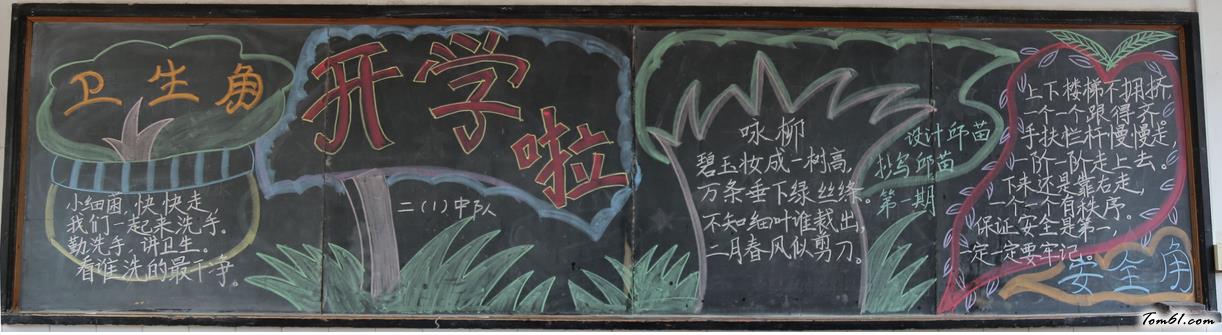 卫生角
小细菌,快快走,
我们一起来洗手。
勤洗手,讲卫生。
看谁洗的最干净。
开学啦
二(1)中队
咏柳
碧玉妆成一树高,
万条垂下绿丝绦。
不知细叶谁裁出,
二月春风似剪刀。
设计邱苗
抄写邱苗
第一期
上下楼梯不拥挤,
一个一个跟得齐。
手扶栏杆慢慢走,
一阶一阶走上去。
下来还是靠右走,
一个一个有秩序。
保证安全是第一,
一定一定要牢记。
安全角
Tom61.com